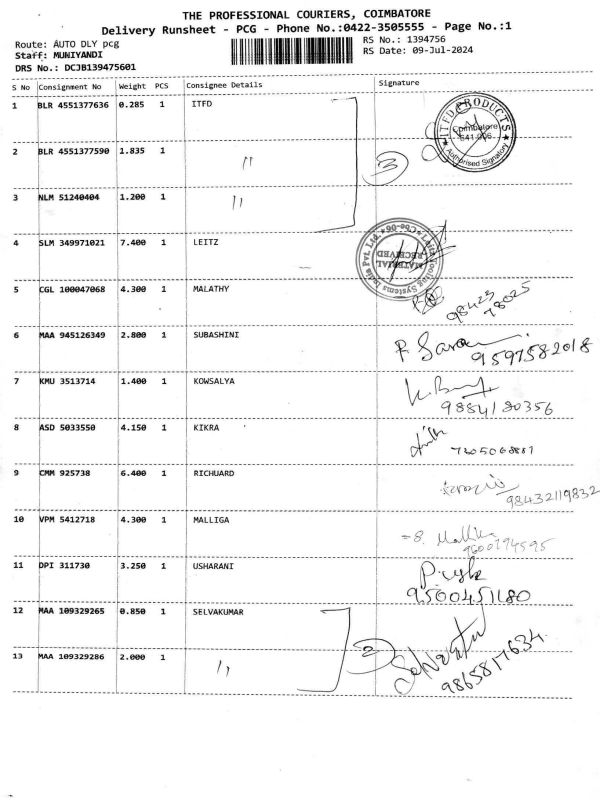 THE PROFESSIONAL COURIERS, COIMBATORE
Delivery Runsheet - PCG - Phone No.:0422-3505555 - Page No.:1
Route: AUTO DLY pcg
RS No.: 1394756
Staff: MUNIYANDI
RS Date: 09-Jul-2024
DRS No.: DCJB139475601
S No Consignment No Weight PCS Consignee Details Signature
1 BLR 4551377636 0.285 1 ITFD
ITFD PRODUCTS
Coimbatore
641 006
Authorised Signatory
2 BLR 4551377590 1.835 1 "
3
3 NLM 51240404 1.200 1 "
4 SLM 349971021 7.400 1 LEITZ
Leitz Tooling Systems India Pvt. Ltd.
MATERIAL
RECEIVED
5 CGL 100047068 4.300 1 MALATHY
98423
78025
6 MAA 945126349 2.800 1 SUBASHINI
9597582018
7 KMU 3513714 1.400 1 KOWSALYA
9884180356
8 ASD 5033550 4.150 1 KIKRA
9 CMM 925738 6.400 1 RICHUARD
98432119832
10 VPM 5412718 4.300 1 MALLIGA
S. Mallika
9600794595
11 DPI 311730 3.250 1 USHARANI
9500451180
12 MAA 109329265 0.850 1 SELVAKUMAR
2
13 MAA 109329286 2.000 1 "
9865817634